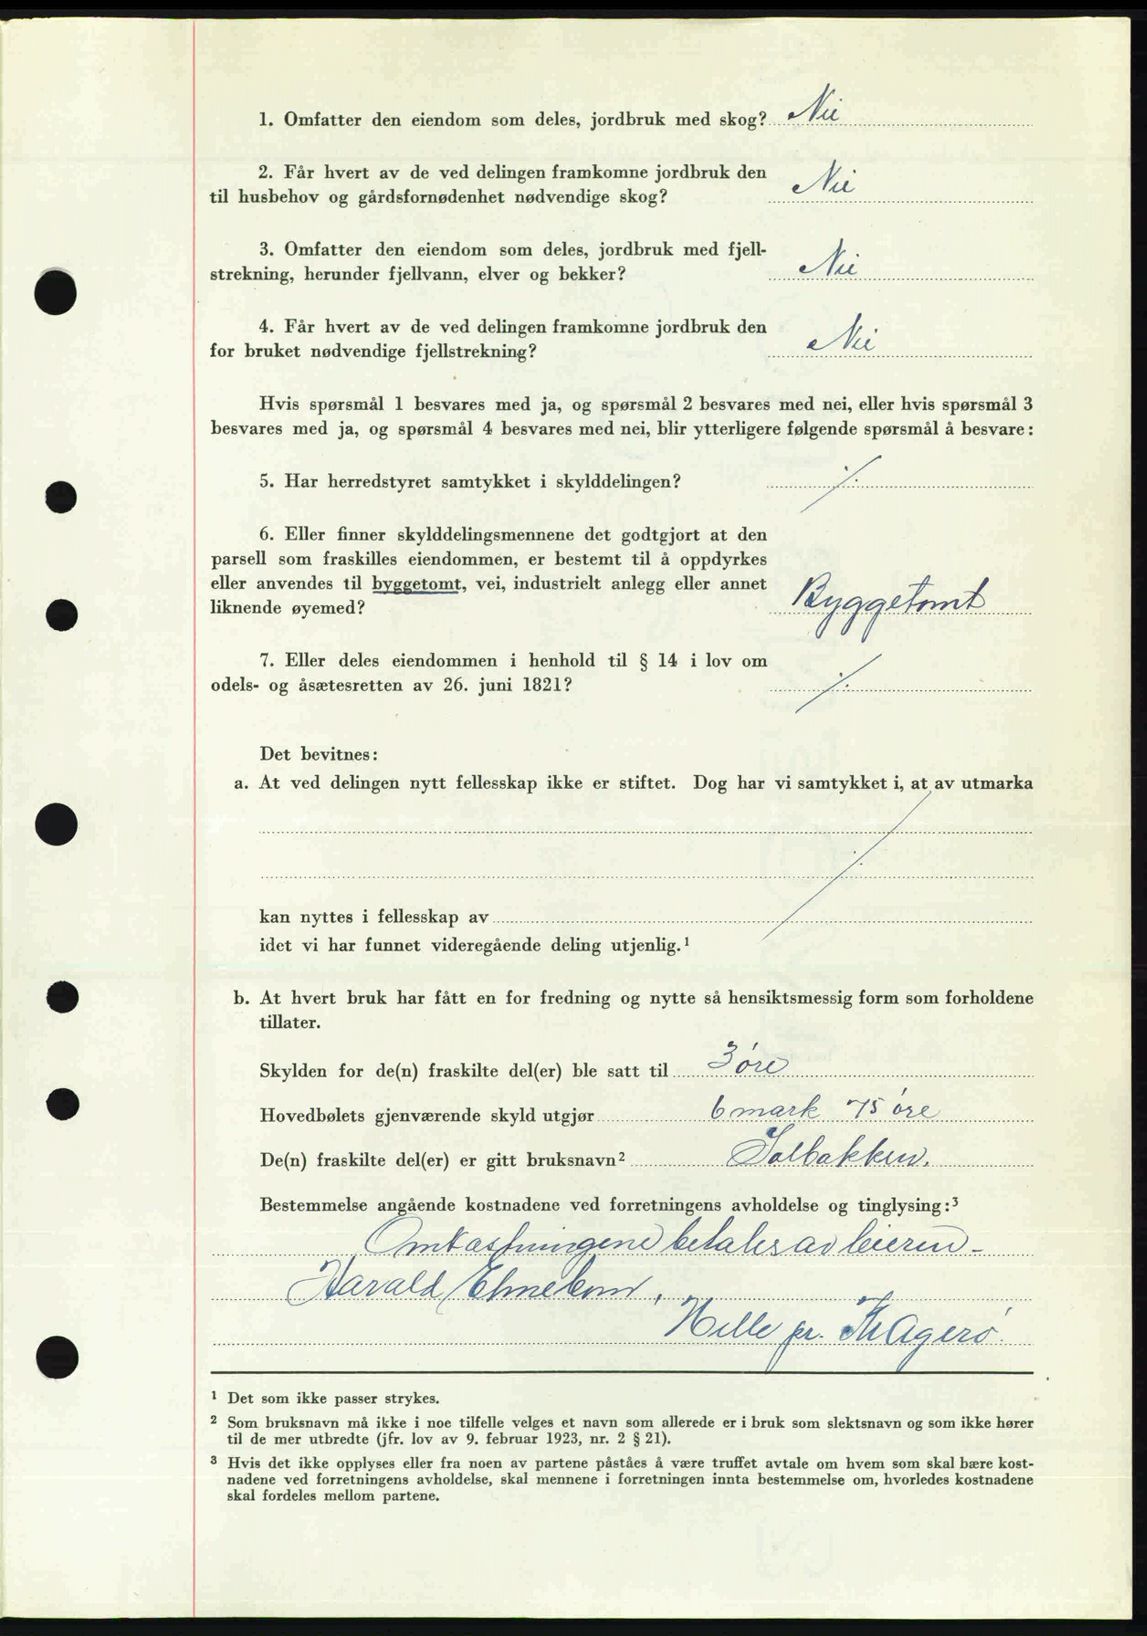 1. Omfatter den eiendom som deles, jordbruk med skog? Nei
2. Får hvert av de ved delingen framkomne jordbruk den
til husbehov og gårdsfornødenhet nødvendige skog? Nei
3. Omfatter den eiendom som deles, jordbruk med fjell-
strekning, herunder fjellvann, elver og bekker? Nei
4. Får hvert av de ved delingen framkomne jordbruk den
for bruket nødvendige fjellstrekning? Nei
Hvis spørsmål 1 besvares med ja, og spørsmål 2 besvares med nei, eller hvis spørsmål 3
besvares med ja, og spørsmål 4 besvares med nei, blir ytterligere følgende spørsmål å besvare:
5. Har herredstyret samtykket i skylddelingen? ./.
6. Eller finner skylddelingsmennene det godtgjort at den
parsell som fraskilles eiendommen, er bestemt til å oppdyrkes
eller anvendes til byggetomt, vei, industrielt anlegg eller annet
liknende øyemed? Byggetomt
7. Eller deles eiendommen i henhold til § 14 i lov om
odels- og åsætesretten av 26. juni 1821? ./.
Det bevitnes:
a. At ved delingen nytt fellesskap ikke er stiftet. Dog har vi samtykket i, at av utmarka
./.
kan nyttes i fellesskap av
idet vi har funnet videregående deling utjenlig.¹
b. At hvert bruk har fått en for fredning og nytte så hensiktsmessig form som forholdene
tillater.
Skylden for de(n) fraskilte del(er) ble satt til 3 øre
Hovedbølets gjenværende skyld utgjør 6 mark 75 øre
De(n) fraskilte del(er) er gitt bruksnavn² Solbakken.
Bestemmelse angående kostnadene ved forretningens avholdelse og tinglysing:³
Omkostningene betales av leieren -
Harald
Helle pr. Kragerø.
¹ Det som ikke passer strykes.
² Som bruksnavn må ikke i noe tilfelle velges et navn som allerede er i bruk som slektsnavn og som ikke hører
til de mer utbredte (jfr. lov av 9. februar 1923, nr. 2 § 21).
³ Hvis det ikke opplyses eller fra noen av partene påståes å være truffet avtale om hvem som skal bære kost-
nadene ved forretningens avholdelse, skal mennene i forretningen innta bestemmelse om, hvorledes kostnadene
skal fordeles mellom partene.